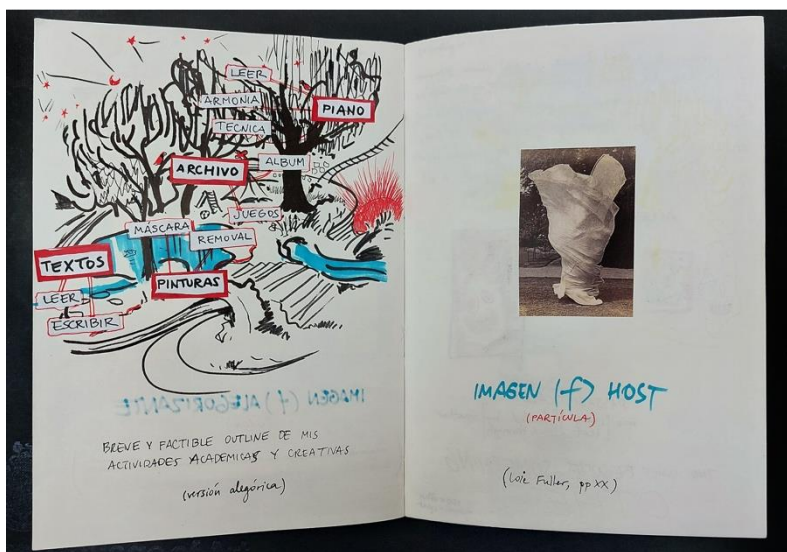 LEER
ARMONIA
PIANO
TECNICA
ALBUM
ARCHIVO
JUEGOS
MÁSCARA
REMOVAL
TEXTOS
PINTURAS
LEER
ESCRIBIR
IMAGEN (f) ALEGORIZANTE
BREVE Y FACTIBLE OUTLINE DE MIS
ACTIVIDADES ACADEMICAS Y CREATIVAS
(versión alegórica)
IMAGEN (f) HOST
(PARTÍCULA)
(Loïe Fuller, pp XX)